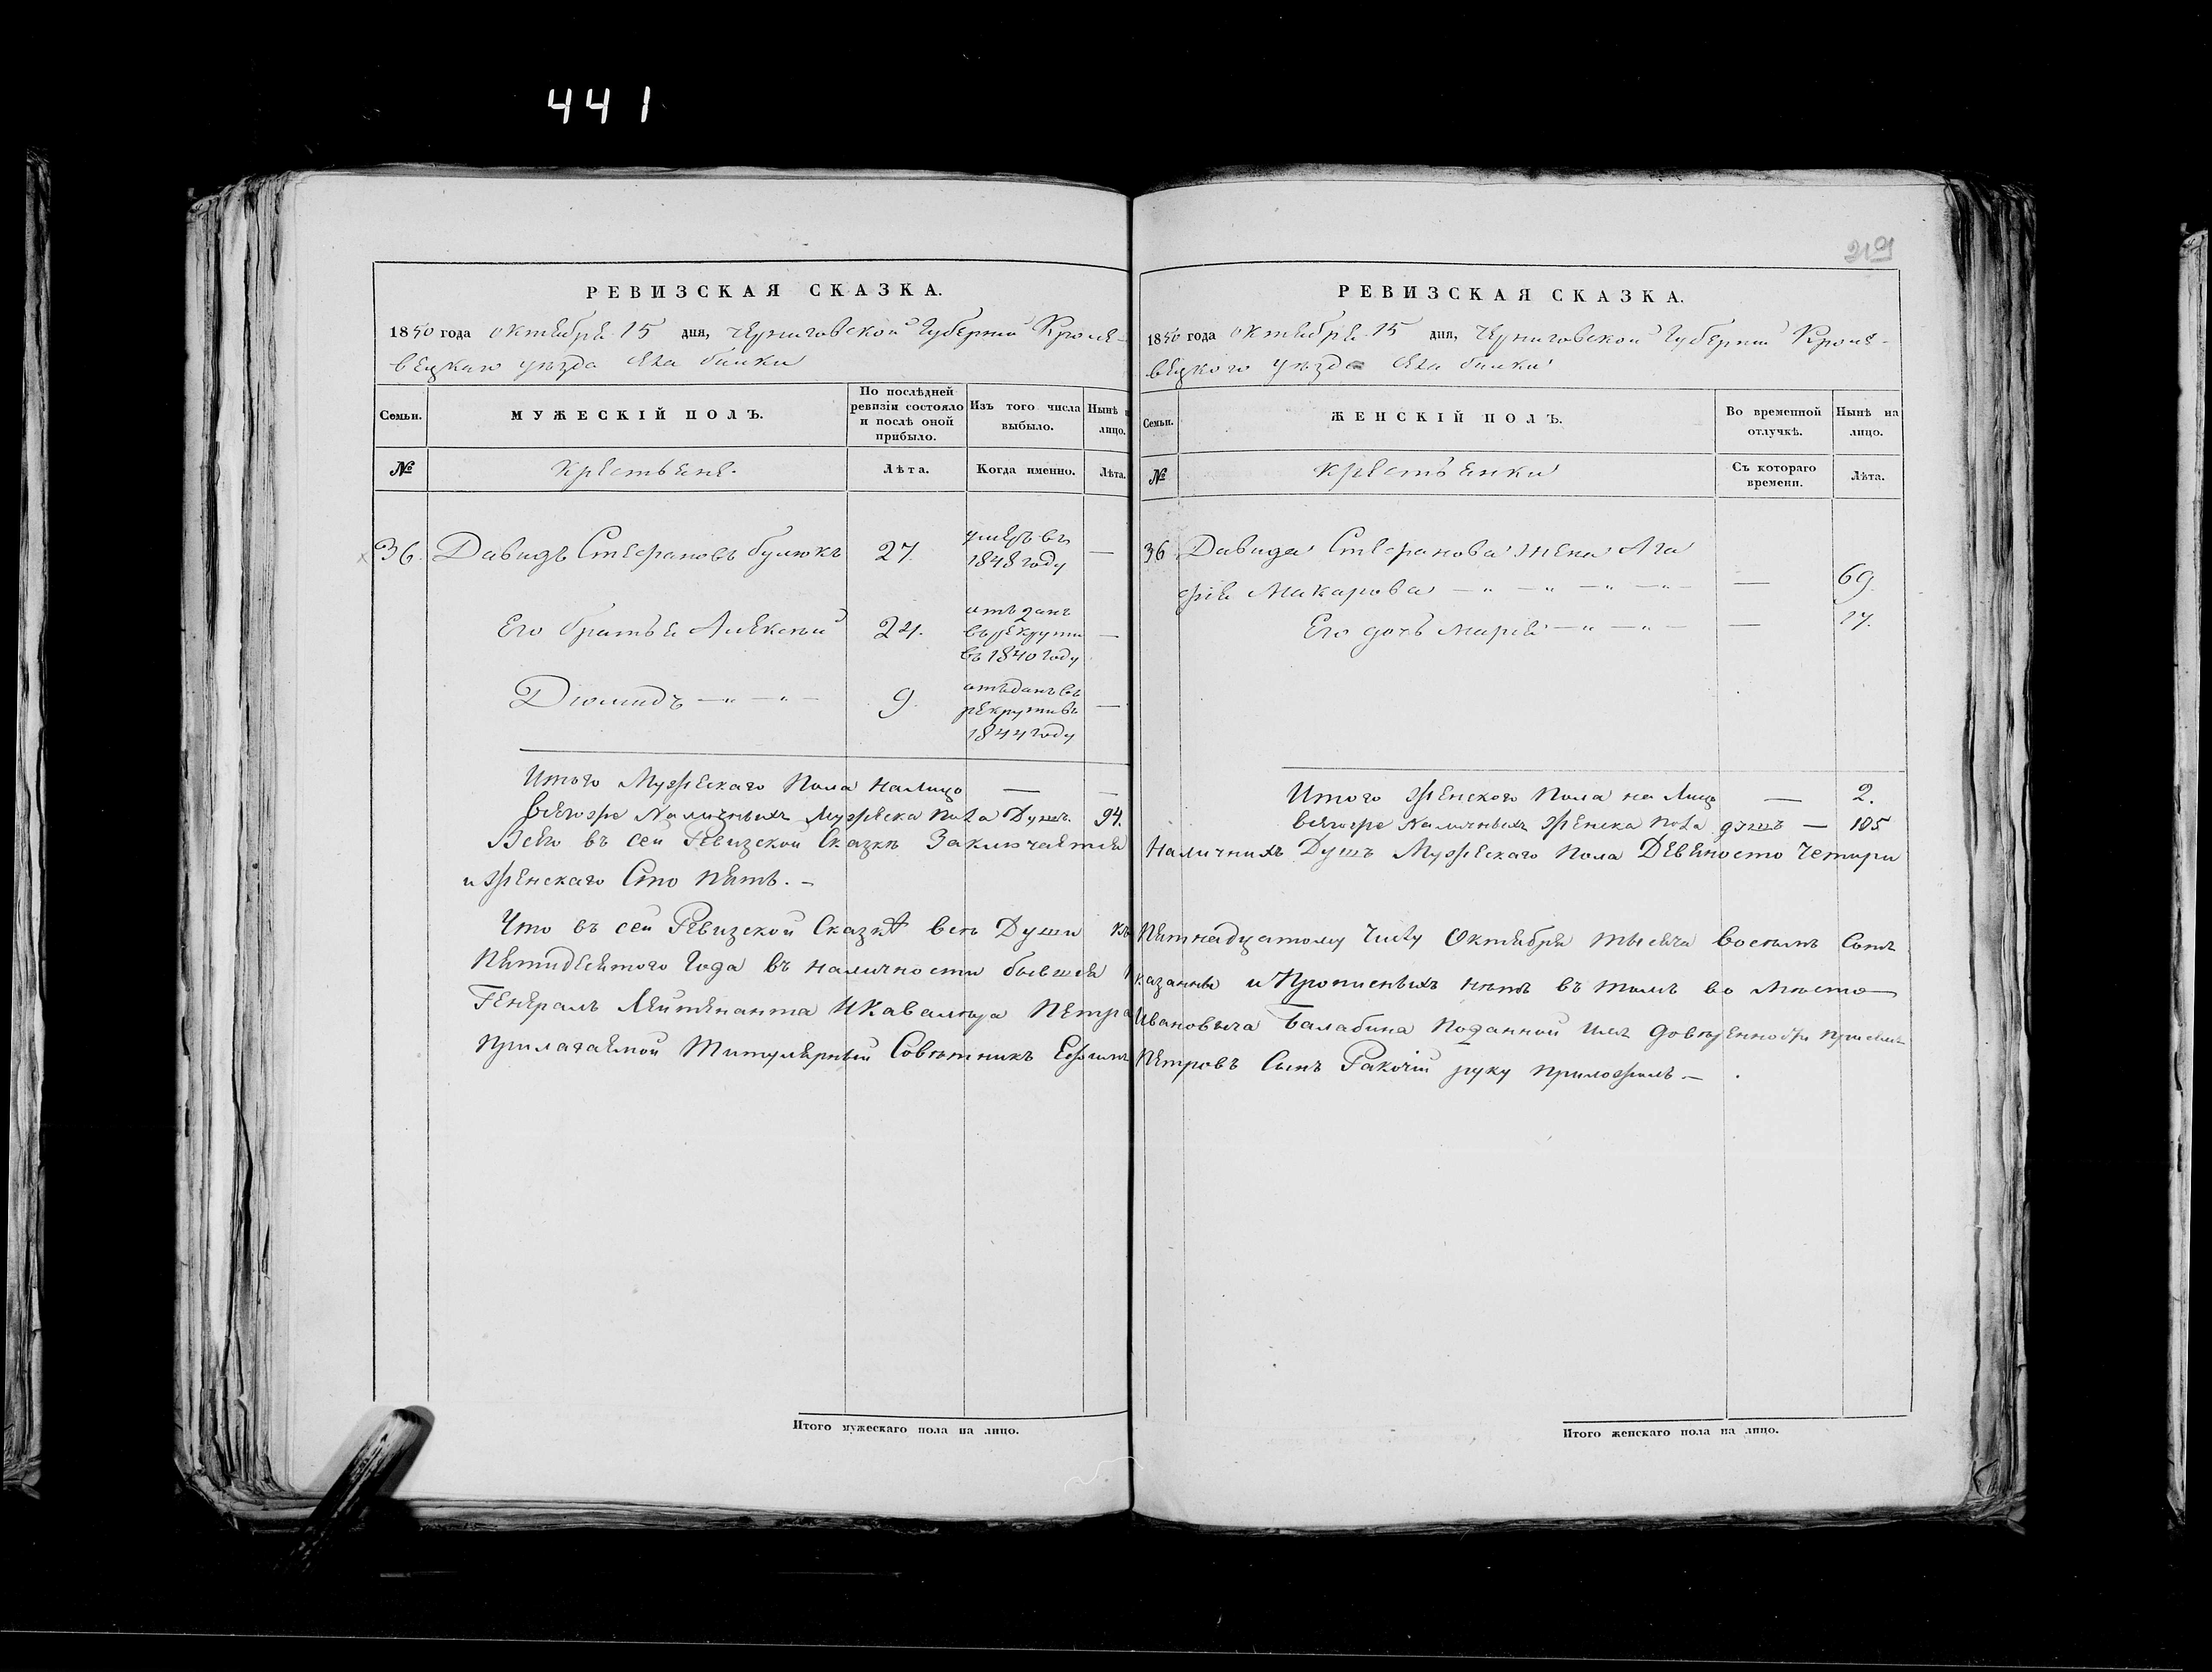 441
219
РЕВИЗСКАЯ СКАЗКА.
1850 года октября 15 дня, Черниговской Губернии Кроле-
вецкаго уезда села билки
Семьи.
МУЖЕСКІЙ ПОЛЪ.
По послѣдней ревизіи состояло и послѣ оной прибыло.
Изъ того числа выбыло.
Нынѣ н лицо.
№
крестьяне.
Лѣта.
Когда именно.
Лѣта.
36. Давидъ Стефановъ булюкъ 27. умеръ въ 1848 году —
Его братья Алексѣй 24. отъданъ въ рекруты въ 1840 году —
Диомидъ — „ — „ — 9. отъданъ въ рекруты въ 1844 году —
Итого Мужескаго Пола Налицо — —
всегоже Наличныхъ Мужеска Пола Душъ 94.
РЕВИЗСКАЯ СКАЗКА.
1850 года октября 15 дня, Черниговской Губернии Кроле-
вецкого уезда села билки
Семьи.
ЖЕНСКІЙ ПОЛЪ.
Во временной отлучкѣ.
Нынѣ на лицо.
№
крестьянки
Съ котораго времени.
Лѣта.
36 Давида Стефанова жена Ага
фия Макарова — „ — „ — „ — — 69.
Его дочь Мария — „ — „ — — 17.
Итого Женского Пола на Лицо — 2.
всегоже Наличныхъ Женска Пола душъ — 105
Всего въ сей Ревизской Сказкѣ Заключается Наличнихъ Душъ Мужескаго Пола Девяносто Четири
и Женскаго Сто Пять. —
Что въ сей Ревизской Сказкѣ всѣ Души къ Пятнадцатому Числу Октября тысяча восемь Сотъ
Пятидесятого Года въ наличности бывшия казанны и Прописныхъ нѣтъ въ томъ во Место
Генералъ Лейтенанта И Кавалера Петра Ивановича Балабина Поданной имъ довѣренности при семъ
прилагаемой Титулярный Совѣтникъ Ефимъ Петровъ Сынъ Ракочій руку приложилъ. —
Итого мужескаго пола на лицо.
Итого женскаго пола на лицо.